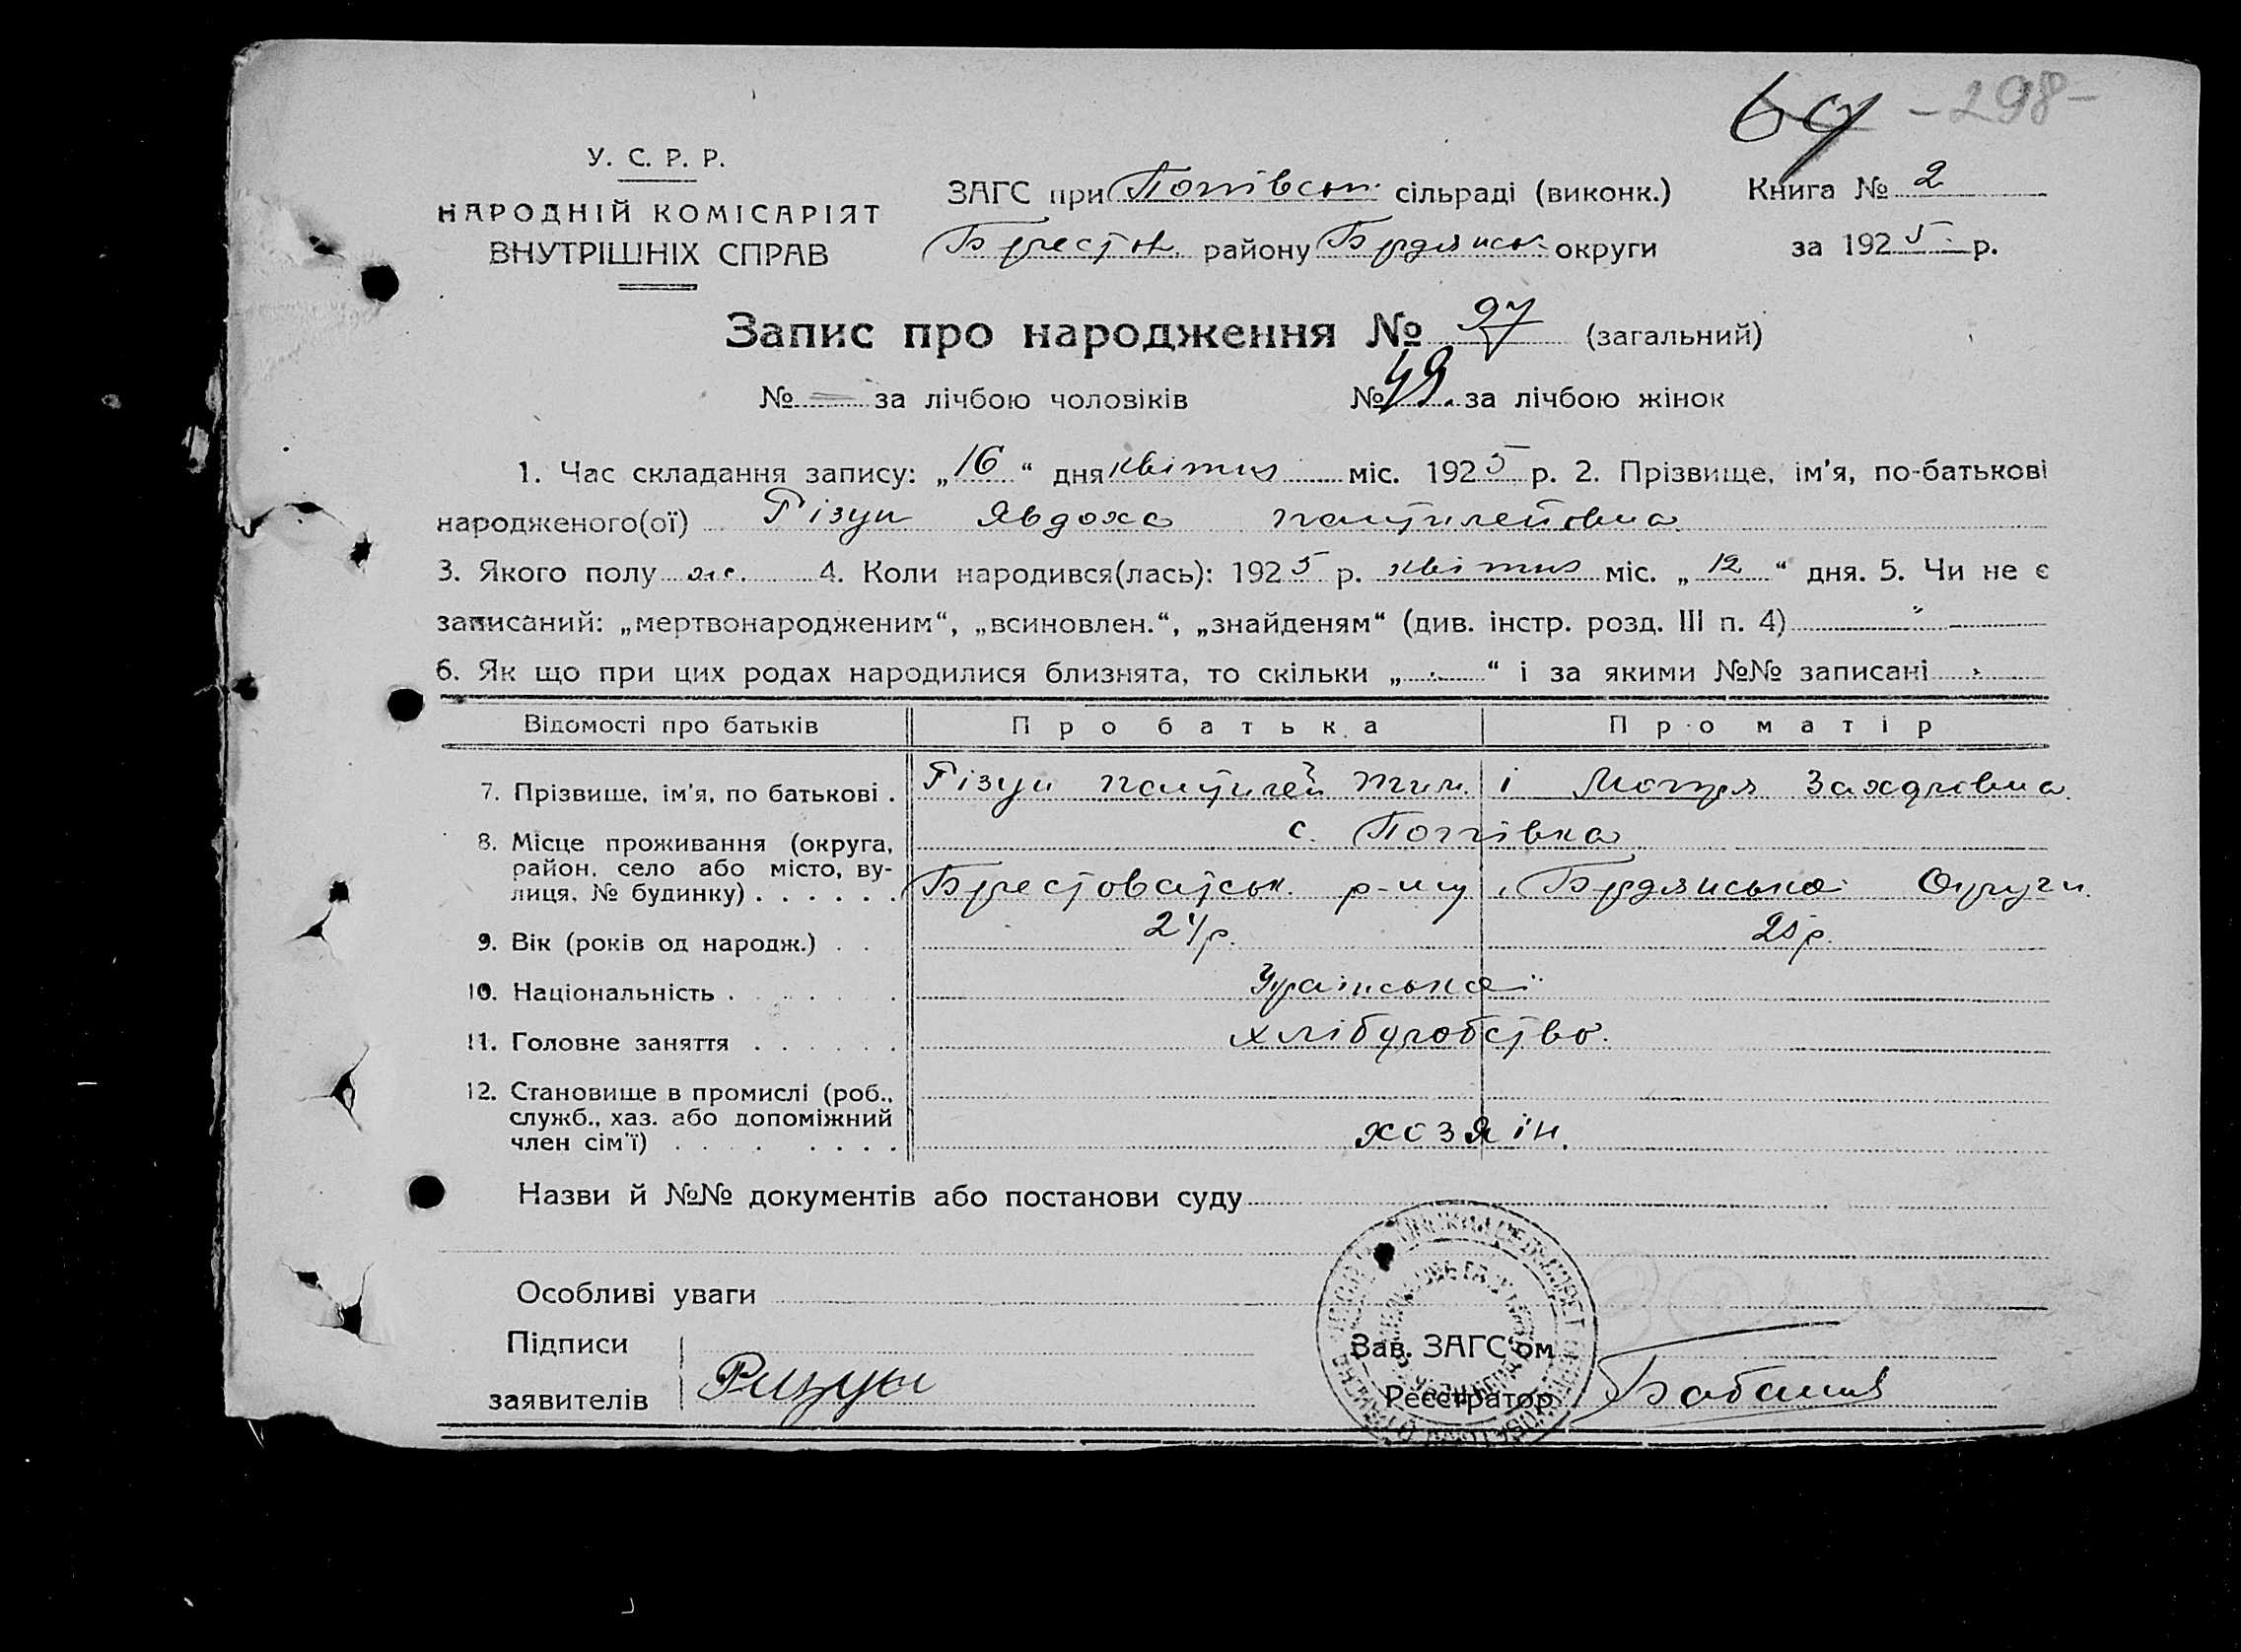 69 -298-
У. С. Р. Р.
НАРОДНІЙ КОМІСАРІЯТ
ВНУТРІШНІХ СПРАВ
ЗАГС при Попівськ. сільраді (виконк.) Книга № 2
Брестов. району Бердянськ. округи за 1925 р.
Запис про народження № 97 (загальний)
№ — за лічбою чоловіків № 49. за лічбою жінок
1. Час складання запису: „16“ дня квітня міс. 1925 р. 2. Прізвище, ім'я, по-батькові
народженого(ої) Різун Явдоха Пантилеїовна
3. Якого полу ж. 4. Коли народився(лась): 1925 р. квітня міс. „12“ дня. 5. Чи не є
записаний: „мертвонародженим“, „всиновлен.“, „знайденям“ (див. інстр. розд. III п. 4)
6. Як що при цих родах народилися близнята, то скільки „ “ і за якими №№ записані
Відомості про батьків Про батька Про матір
7. Прізвище, ім'я, по батькові . Різун Пантилей Тим. і Мотря Захарівна.
8. Місце проживання (округа, район, село або місто, вулиця, № будинку) . . . . . . с. Попівка
Брестоватськ. р-ну, Бердянської Округи.
9. Вік (років од народж.) . . 24р. 25р.
10. Національність . . . . . Українська
11. Головне заняття . . . . . хліборобство.
12. Становище в промислі (роб., служб., хаз. або допоміжний член сім'ї) . . . . . . . . хозяін.
Назви й №№ документів або постанови суду
Особливі уваги
Підписи Зав. ЗАГС'ом
заявителів Ризун Реєстратор